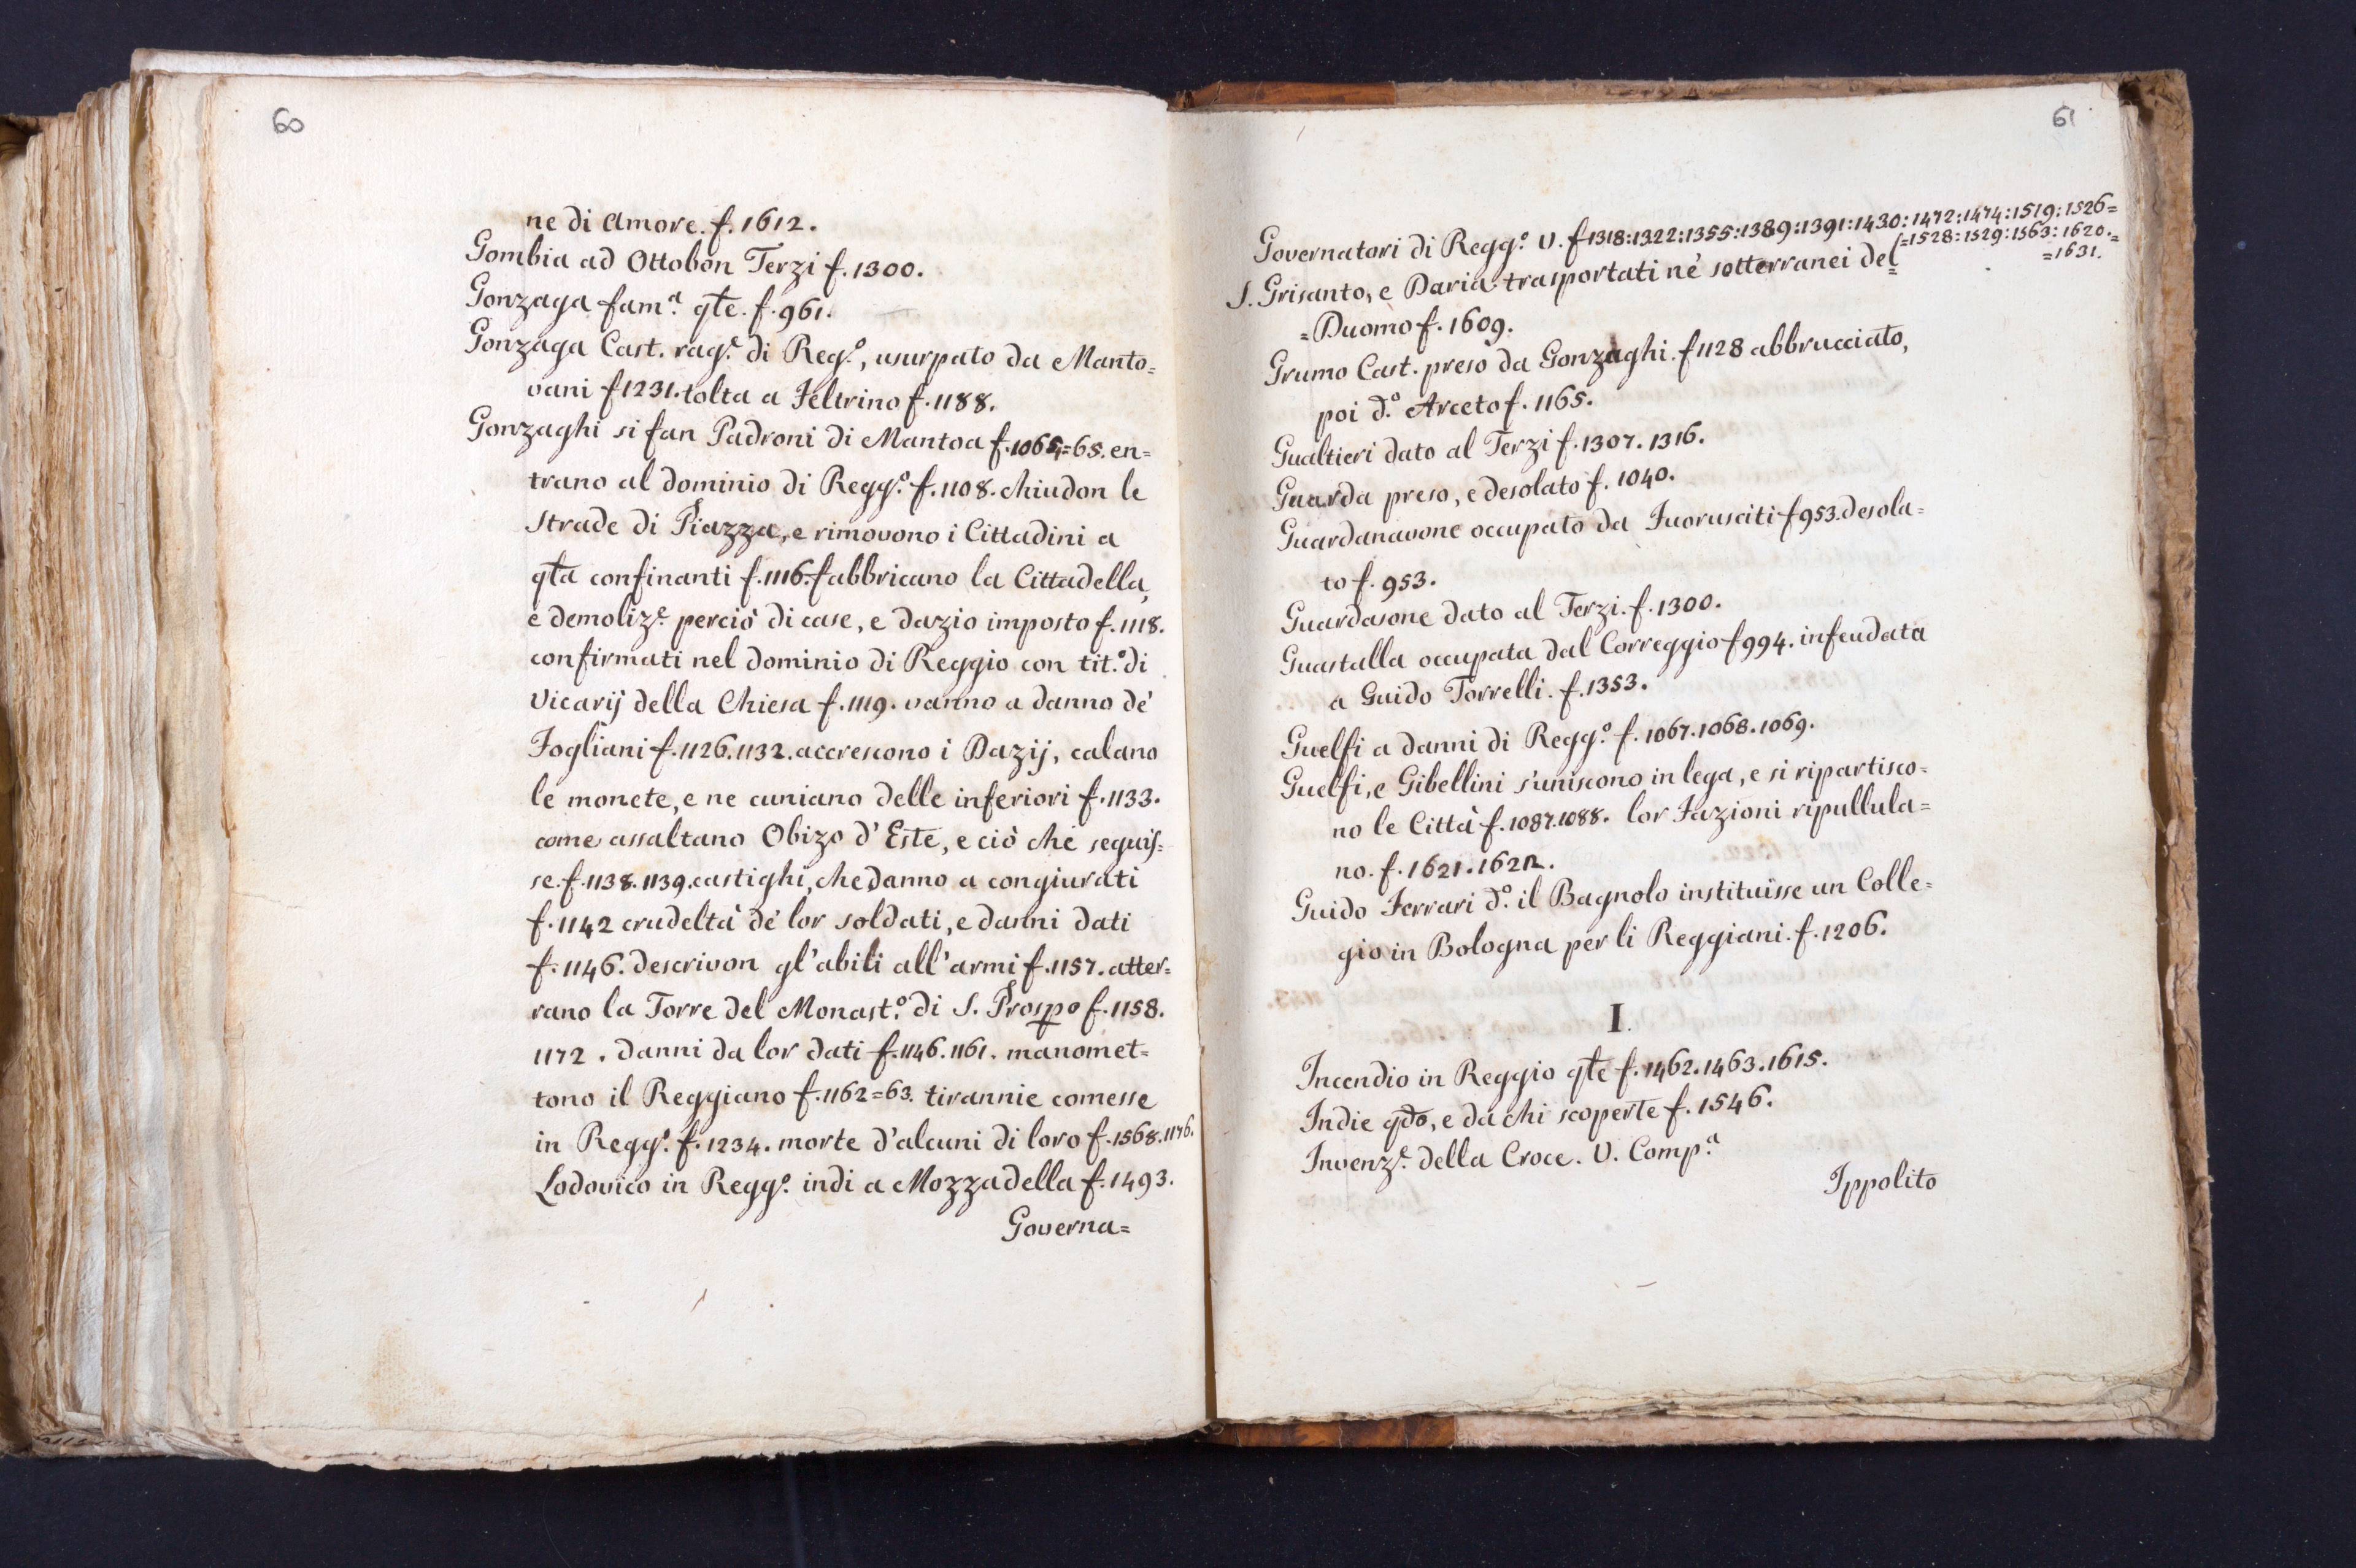 60
ne di Amore. f. 1612.
Gombia ad Ottobon Terzi f. 1300.
Gonzaga fam.ª qte. f. 961.
Gonzaga Cast. rag.e di Reg.º, usurpato da Manto=
vani f 1231. tolta a Feltrino f. 1188.
Gonzaghi si fan Padroni di Mantoa f. 1064=65. en=
trano al dominio di Regg.º f. 1108. chiudon le
strade di Piazza, e rimovono i Cittadini a
qta confinanti f. 1116. fabbricano la Cittadella,
e demoliz.e perciò di case, e dazio imposto f. 1118.
confirmati nel dominio di Reggio con tit.º di
Vicarij della Chiesa f. 1119. vanno a danno de'
Fogliani f. 1126. 1132. accrescono i Dazij, calano
le monete, e ne cuniano delle inferiori f. 1133.
come assaltano Obizo d' Este, e ciò che seguis=
se. f. 1138. 1139. castighi, che danno a congiurati
f. 1142 crudeltà de' lor soldati, e danni dati
f. 1146. descrivon gl' abili all' armi f. 1157. atter=
rano la Torre del Monast.º di S. Prospo f. 1158.
1172. danni da lor dati f. 1146. 1161. manomet=
tono il Reggiano f. 1162=63. tirannie comesse
in Regg.º f. 1234. morte d'alcuni di loro f. 1568. 1176.
Lodovico in Regg.º indi a Mozzadella f. 1493.
Governa=
61
Governatori di Regg.º V. f 1318:1322:1355:1389:1391:1430:1472:1474:1519:1526=
=1528:1529:1563:1620.=
=1631.
S. Grisanto, e Daria trasportati nè sotterranei del=
=Duomo f. 1609.
Grumo Cast. preso da Gonzaghi. f 1128 abbrucciato,
poi d.º Arceto f. 1165.
Gualtieri dato al Terzi f. 1307. 1316.
Guarda preso, e desolato f. 1040.
Guardanavone occupato da Fuorusciti f 953. desola=
to f. 953.
Guardasone dato al Terzi. f. 1300.
Guastalla occupata dal Correggio f 994. infeudata
a Guido Torrelli. f. 1353.
Guelfi a danni di Regg.º f. 1067. 1068. 1069.
Guelfi, e Gibellini s'uniscono in lega, e si ripartisco=
no le Città f. 1087. 1088. lor Fazioni ripullula=
no. f. 1621. 1622.
Guido Ferrari d.º il Bagnolo instituisse un Colle=
gio in Bologna per li Reggiani. f. 1206.
I.
Incendio in Reggio qte f. 1462. 1463. 1615.
Indie qdo, e da chi scoperte f. 1546.
Invenz.e della Croce. V. Comp.ª
Ippolito